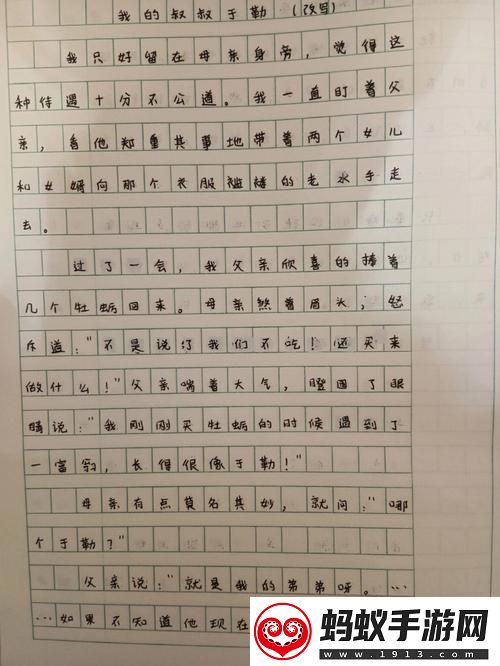 我的叔叔于勒（改写）
我只好留在母亲身旁，觉得这
种待遇十分不公道。我一直盯着父
亲，看他郑重其事地带着两个女儿
和女婿向那个衣服褴褛的老水手走
去。
过了一会，我父亲欣喜的捧着
几个牡蛎回来。母亲皱着眉头，怒
斥道："不是说了我们不吃！还买来
做什么！"父亲喘着大气，瞪圆了眼
睛说："我刚刚买牡蛎的时候遇到了
一富翁，长得很像于勒！"
母亲有点莫名其妙，就问："哪
个于勒？"
父亲说："就是我的弟弟呀。…
…如果不知道他现在
蚂蚁手游网
www.1913.com